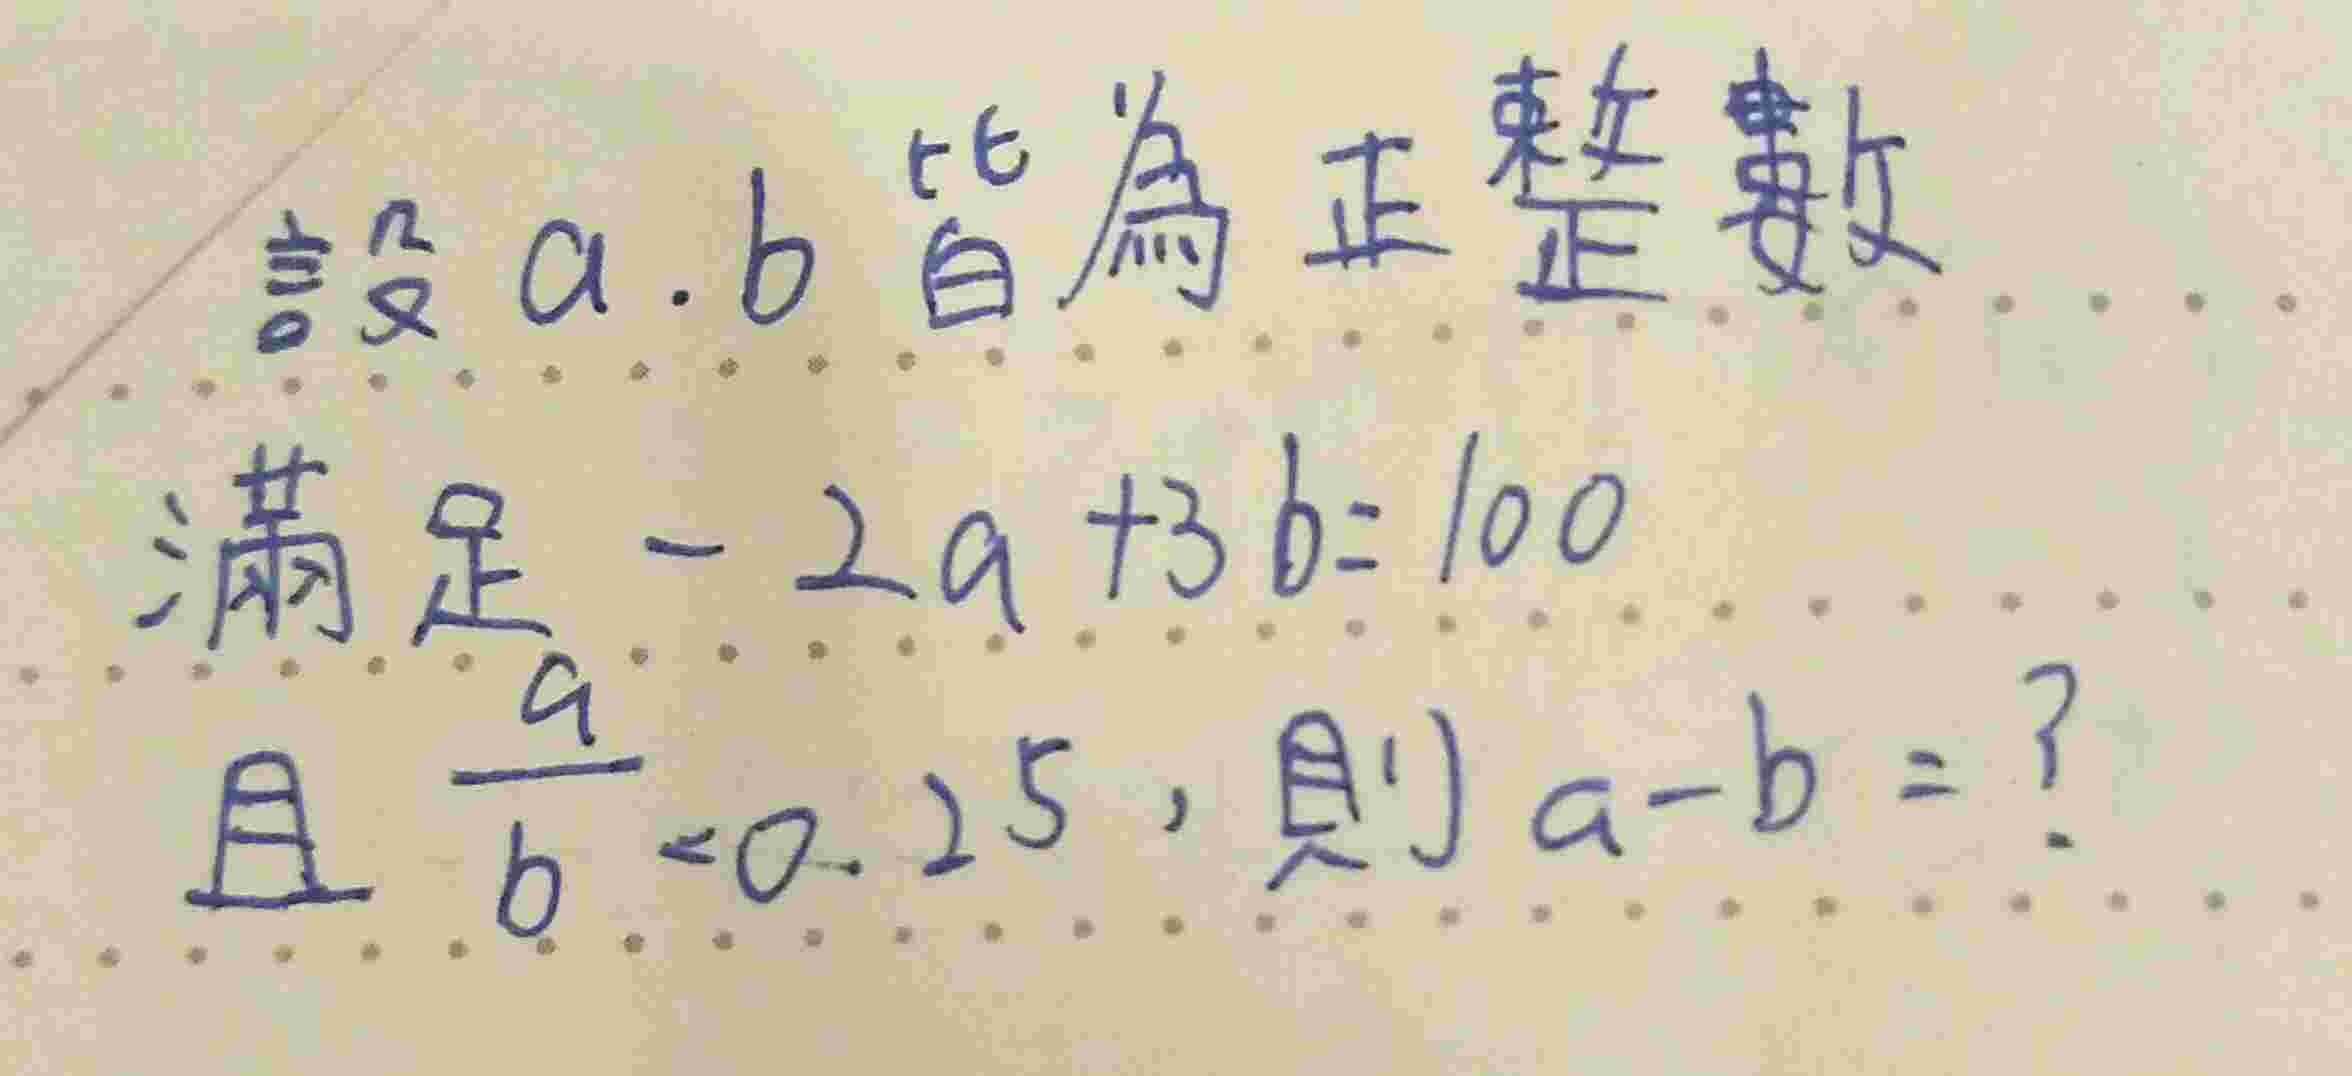 設a.b皆為正整數
滿足-2a+3b=100
且a/b<0.25,則a-b=?